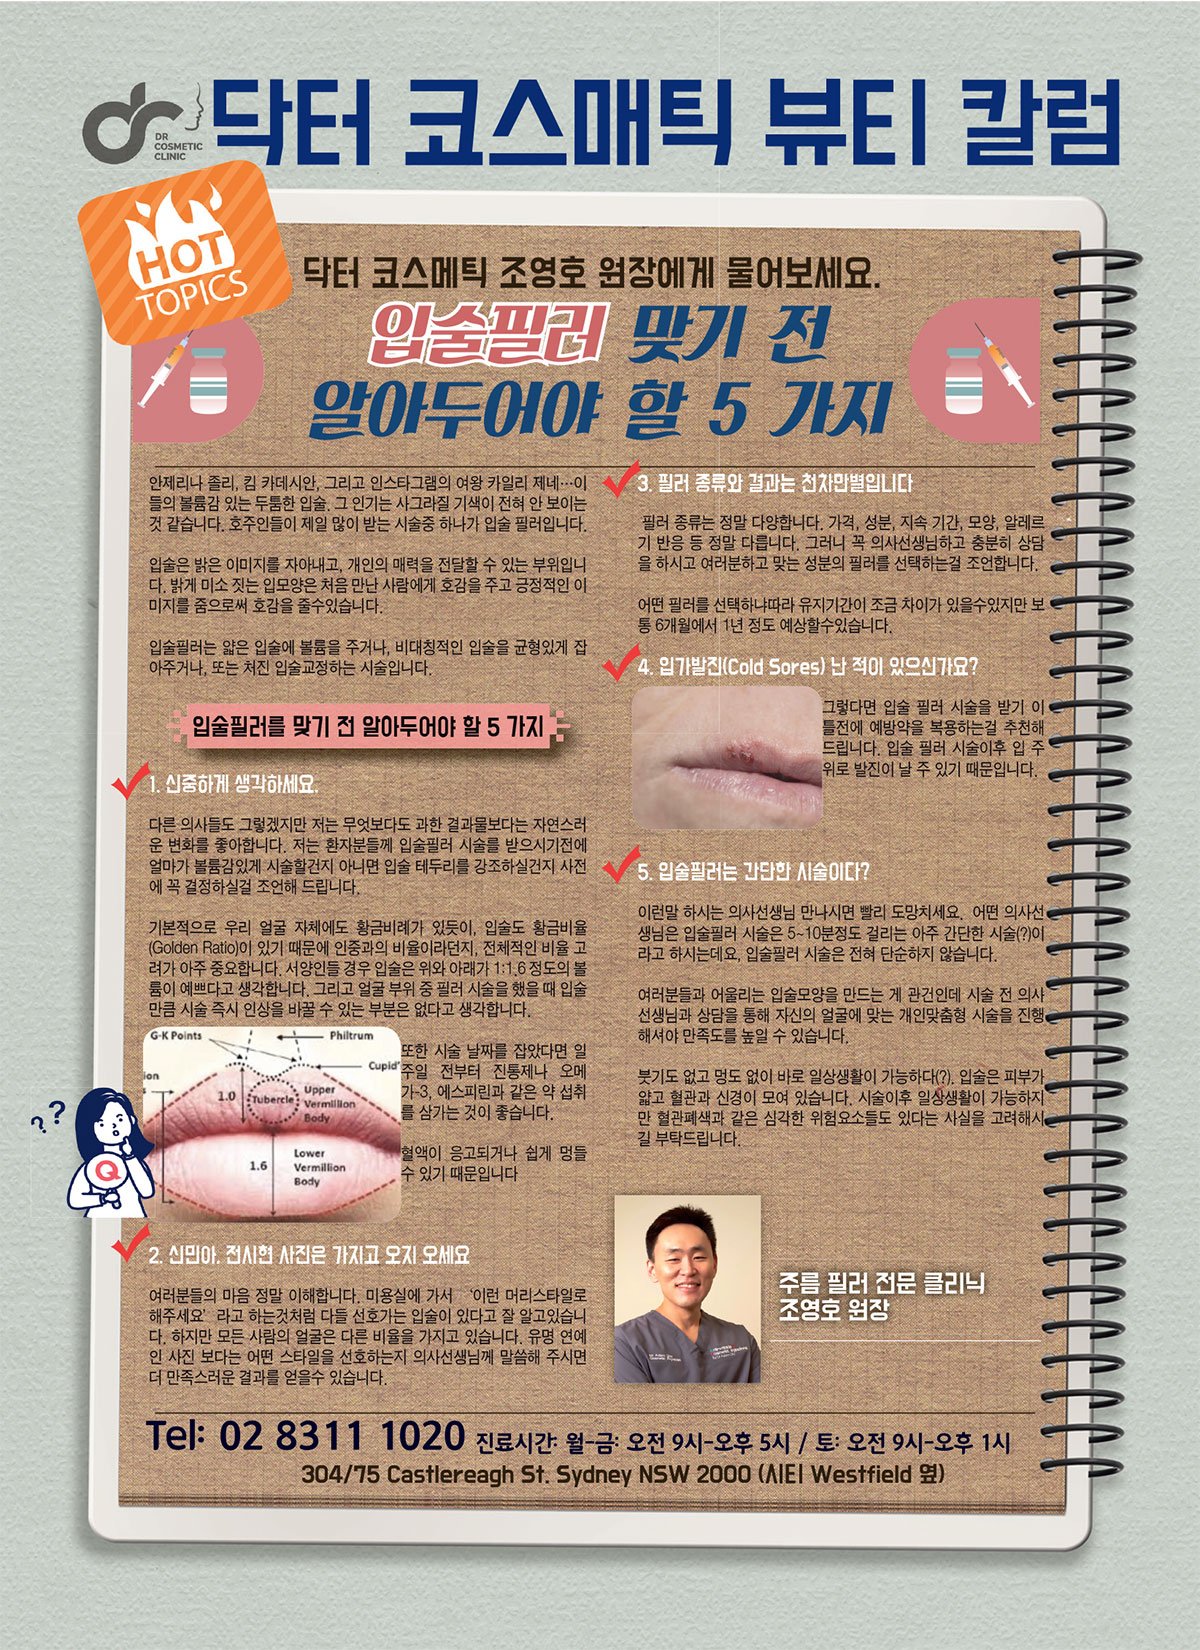 DR
COSMETIC
CLINIC
닥터 코스매틱 뷰티 칼럼
HOT
TOPICS
닥터 코스메틱 조영호 원장에게 물어보세요.
입술필러 맞기 전
알아두어야 할 5 가지
안제리나 졸리, 킴 카데시안, 그리고 인스타그램의 여왕 카일리 제네…이
들의 볼륨감 있는 두툼한 입술. 그 인기는 사그라질 기색이 전혀 안 보이는
것 같습니다. 호주인들이 제일 많이 받는 시술중 하나가 입술 필러입니다.
입술은 밝은 이미지를 자아내고, 개인의 매력을 전달할 수 있는 부위입니
다. 밝게 미소 짓는 입모양은 처음 만난 사람에게 호감을 주고 긍정적인 이
미지를 줌으로써 호감을 줄수있습니다.
입술필러는 얇은 입술에 볼륨을 주거나, 비대칭적인 입술을 균형있게 잡
아주거나, 또는 처진 입술교정하는 시술입니다.
입술필러를 맞기 전 알아두어야 할 5 가지
1. 신중하게 생각하세요.
다른 의사들도 그렇겠지만 저는 무엇보다도 과한 결과물보다는 자연스러
운 변화를 좋아합니다. 저는 환자분들께 입술필러 시술를 받으시기전에
얼마가 볼륨감있게 시술할건지 아니면 입술 테두리를 강조하실건지 사전
에 꼭 결정하실걸 조언해 드립니다.
기본적으로 우리 얼굴 자체에도 황금비례가 있듯이, 입술도 황금비율
(Golden Ratio)이 있기 때문에 인중과의 비율이라던지, 전체적인 비율 고
려가 아주 중요합니다. 서양인들 경우 입술은 위와 아래가 1:1.6 정도의 볼
륨이 예쁘다고 생각합니다. 그리고 얼굴 부위 중 필러 시술을 했을 때 입술
만큼 시술 즉시 인상을 바꿀 수 있는 부분은 없다고 생각합니다.
G-K Points
Philtrum
Cupid'
ion
1.0
Tubercle
Upper
Vermillion
Body
1.6
Lower
Vermillion
Body
또한 시술 날짜를 잡았다면 일
주일 전부터 진통제나 오메
가-3, 에스피린과 같은 약 섭취
를 삼가는 것이 좋습니다.
혈액이 응고되거나 쉽게 멍들
수 있기 때문입니다
??
Q
2. 신민아, 전시현 사진은 가지고 오지 오세요
여러분들의 마음 정말 이해합니다. 미용실에 가서 ‘이런 머리스타일로
해주세요’ 라고 하는것처럼 다들 선호가는 입술이 있다고 잘 알고있습니
다. 하지만 모든 사람의 얼굴은 다른 비율을 가지고 있습니다. 유명 연예
인 사진 보다는 어떤 스타일을 선호하는지 의사선생님께 말씀해 주시면
더 만족스러운 결과를 얻을수 있습니다.
3. 필러 종류와 결과는 천차만별입니다
필러 종류는 정말 다양합니다. 가격, 성분, 지속 기간, 모양, 알레르
기 반응 등 정말 다릅니다. 그러니 꼭 의사선생님하고 충분히 상담
을 하시고 여러분하고 맞는 성분의 필러를 선택하는걸 조언합니다.
어떤 필러를 선택하냐따라 유지기간이 조금 차이가 있을수있지만 보
통 6개월에서 1년 정도 예상할수있습니다.
4. 입가발진(Cold Sores) 난 적이 있으신가요?
그렇다면 입술 필러 시술을 받기 이
틀전에 예방약을 복용하는걸 추천해
드립니다. 입술 필러 시술이후 입 주
위로 발진이 날 주 있기 때문입니다.
5. 입술필러는 간단한 시술이다?
이런말 하시는 의사선생님 만나시면 빨리 도망치세요. 어떤 의사선
생님은 입술필러 시술은 5~10분정도 걸리는 아주 간단한 시술(?)이
라고 하시는데요, 입술필러 시술은 전혀 단순하지 않습니다.
여러분들과 어울리는 입술모양을 만드는 게 관건인데 시술 전 의사
선생님과 상담을 통해 자신의 얼굴에 맞는 개인맞춤형 시술을 진행
해셔야 만족도를 높일 수 있습니다.
붓기도 없고 멍도 없이 바로 일상생활이 가능하다(?). 입술은 피부가
얇고 혈관과 신경이 모여 있습니다. 시술이후 일상생활이 가능하지
만 혈관폐색과 같은 심각한 위험요소들도 있다는 사실을 고려해시
길 부탁드립니다.
주름 필러 전문 클리닉
조영호 원장
Tel: 02 8311 1020 진료시간: 월-금: 오전 9시-오후 5시 / 토: 오전 9시-오후 1시
304/75 Castlereagh St. Sydney NSW 2000 (시티 Westfield 옆)